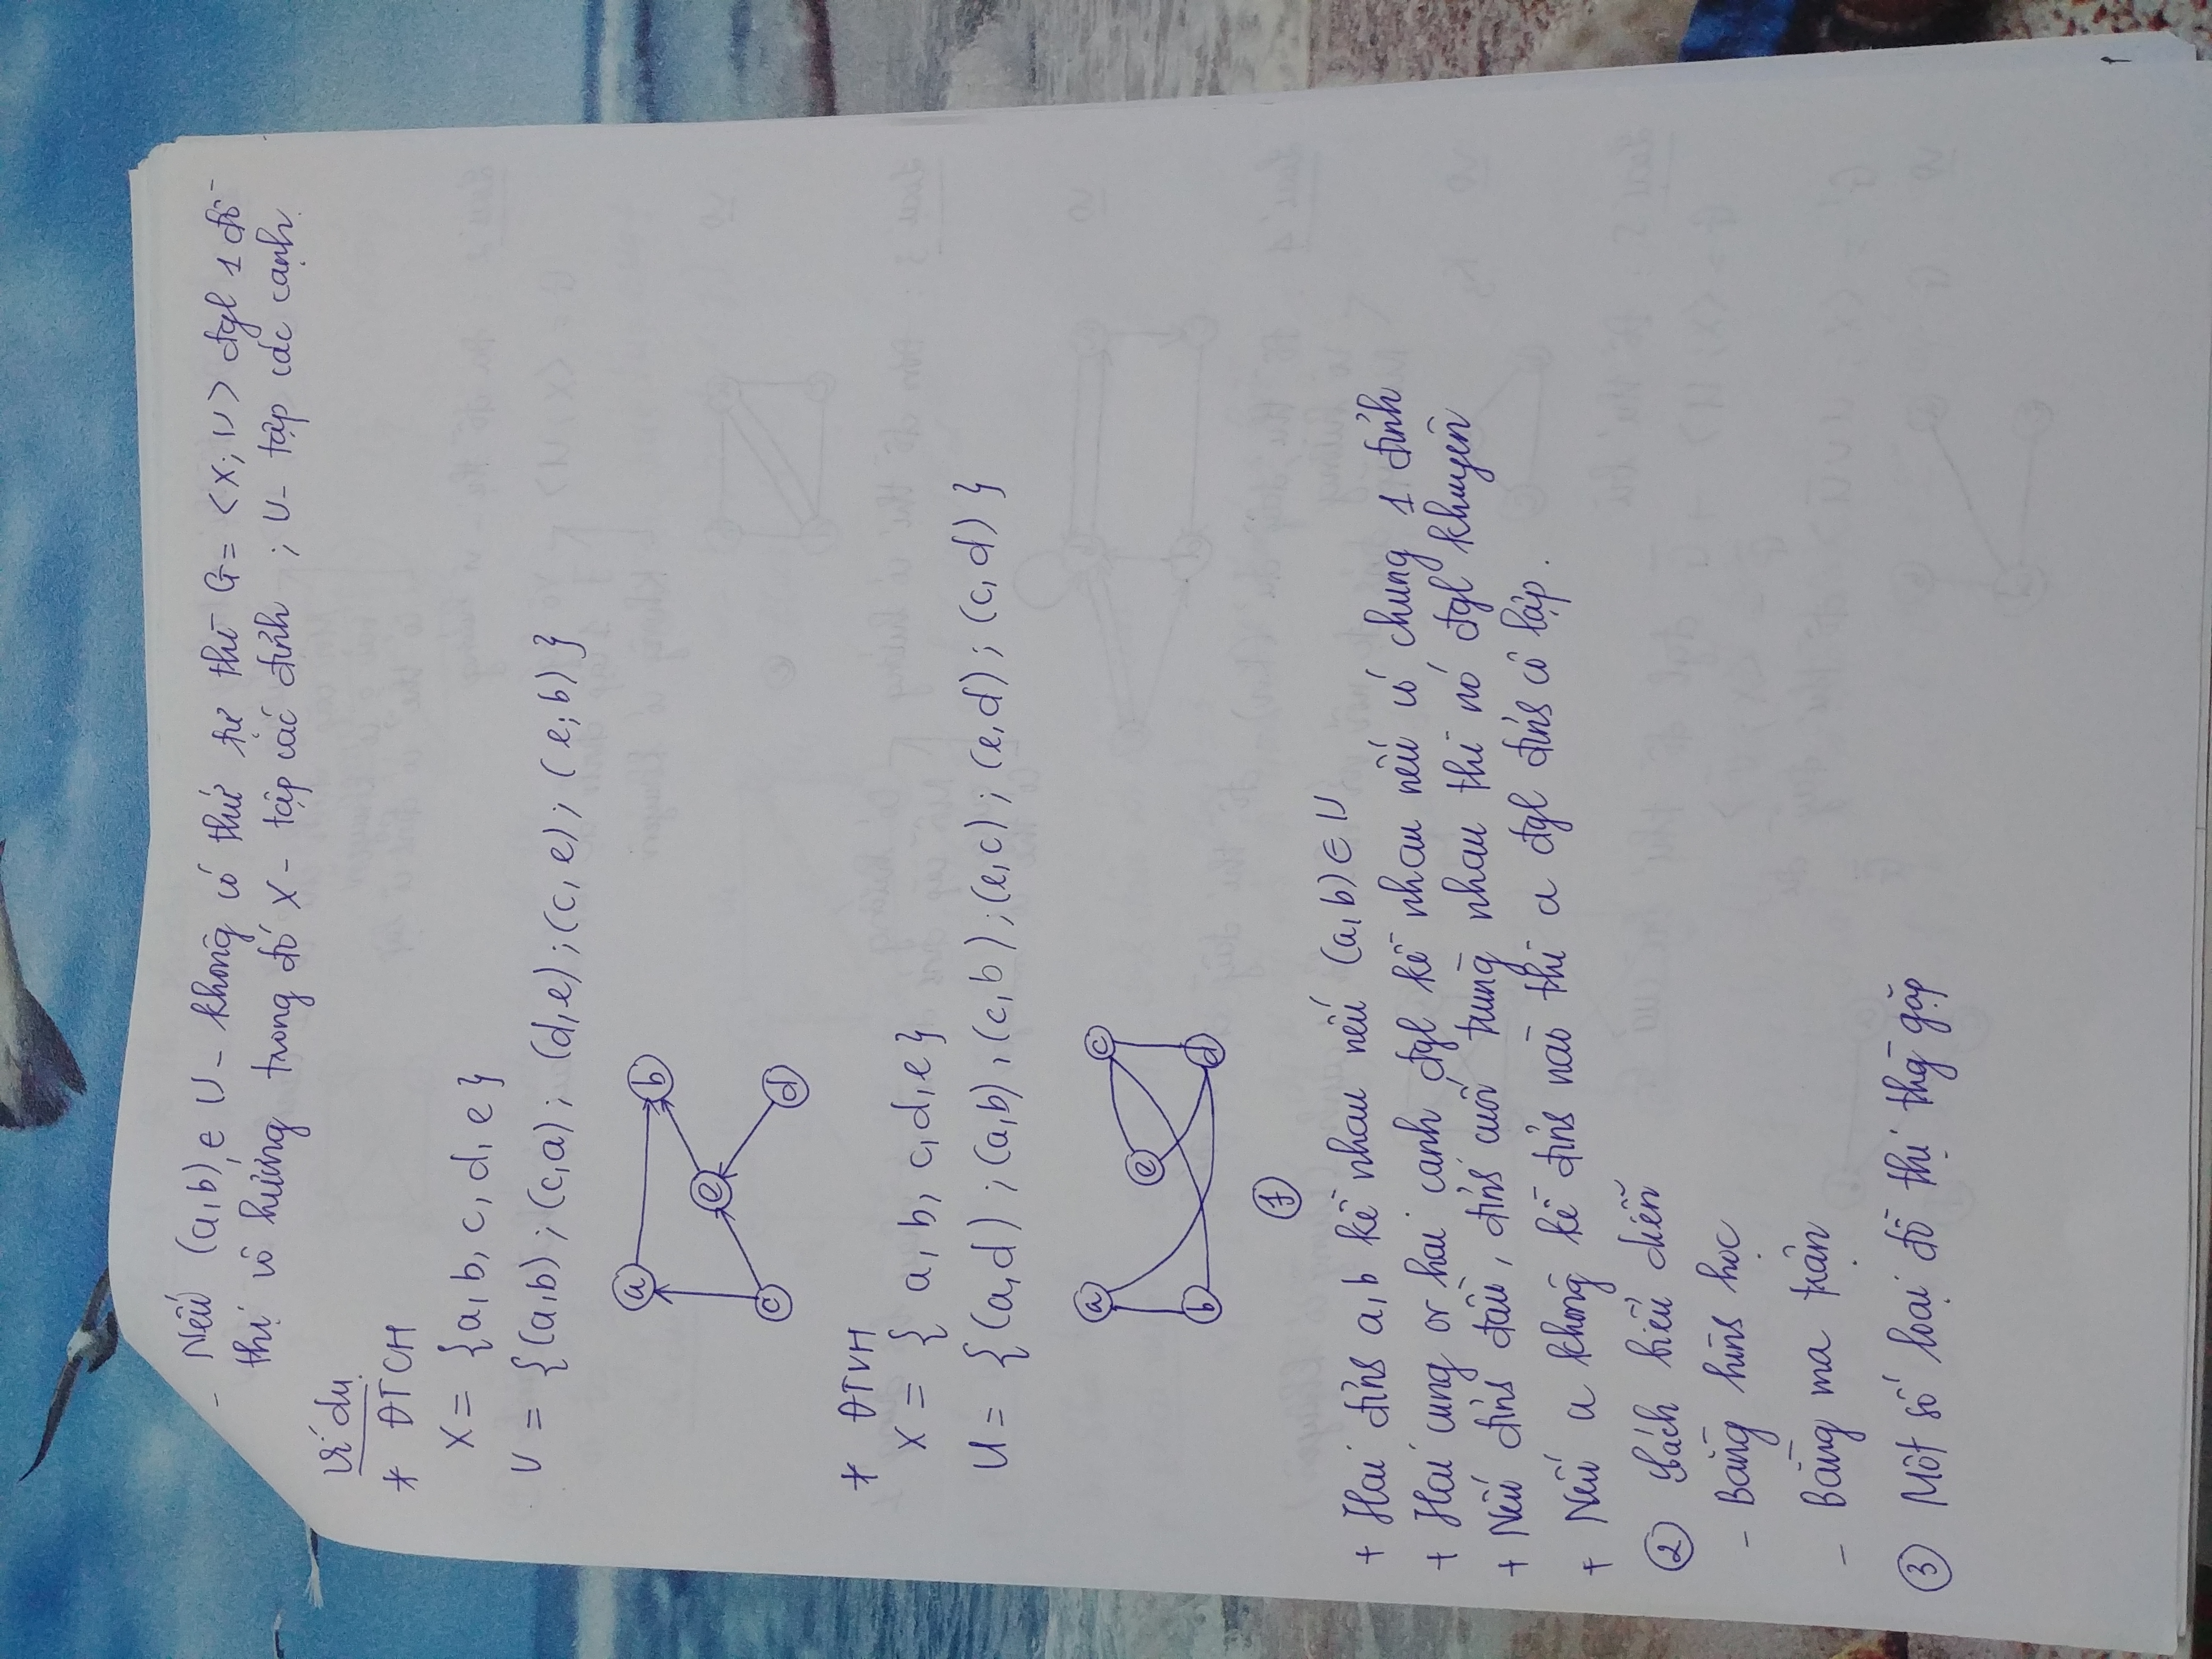 - Nếu (a,b) ∈ U - không có thứ tự thì G = <X; U> đgl 1 đồ
thị vô hướng trong đó X - tập các đỉnh ; U - tập các cạnh
Ví dụ
* ĐTCH
X = {a, b, c, d, e}
U = {(a,b) ; (c,a) ; (d,e) ; (c,e) ; (e;b)}
a
b
e
c
d
* ĐTVH
X = { a, b, c, d, e}
U = {(a,d) ; (a,b), (c,b) ; (e,c) ; (e,d) ; (c,d) }
a
c
e
b
d
1
+ Hai đỉnh a,b kề nhau nếu (a,b) ∈ U
+ Hai cung or hai cạnh đgl kề nhau nếu có chung 1 đỉnh
+ Nếu đỉnh đầu, đỉnh cuối trùng nhau thì nó đgl khuyên
+ Nếu a không kề đỉnh nào thì a đgl đỉnh cô lập.
② Cách biểu diễn
- Bằng hình học
- Bằng ma trận
③ Một số loại đồ thị thg gặp